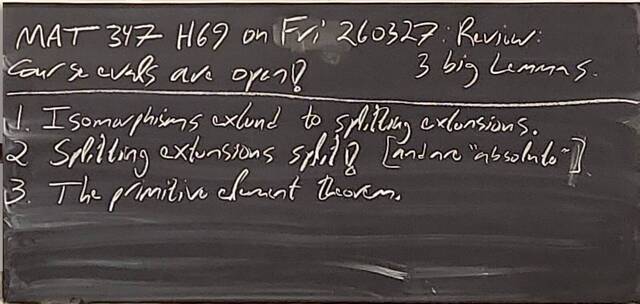 MAT 347 H69 on Fri 260327: Review:
Course evals are open! 3 big Lemmas.
1. Isomorphisms extend to splitting extensions.
2 Splitting extensions split! [and are "absolute"]
3. The primitive element theorem.